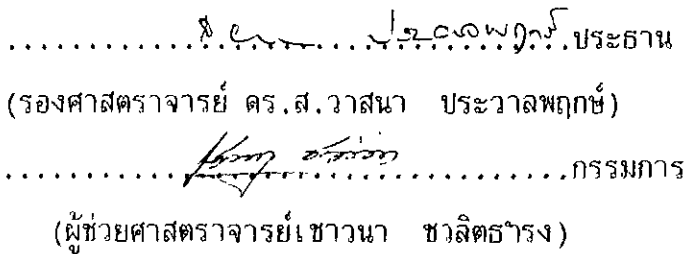 ........................................ประธาน
(รองศาสตราจารย์ ดร.ส.วาสนา ประวาลพฤกษ์)
........................................กรรมการ
(ผู้ช่วยศาสตราจารย์เชาวนา ชวลิตธำรง)